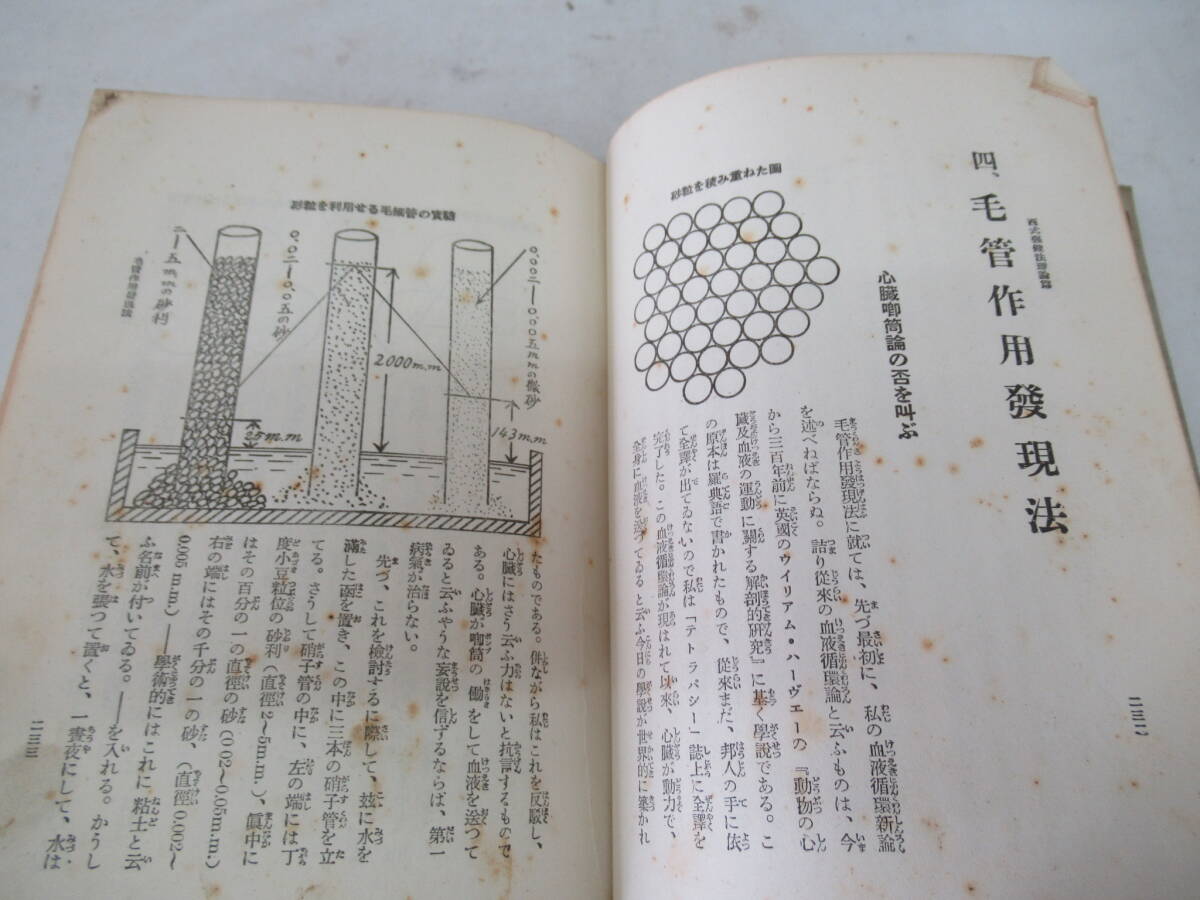 西式強健法理論篇
四、毛管作用發現法
心臟喞筒論の否を叫ぶ
砂粒を積み重ねた圖
毛管作用發現法に就ては、先づ最初に、私の血液循環新論
を述べねばならぬ。詰り從來の血液循環論と云ふものは、今
から三百年前に英國のウイリアム・ハーヴエーの『動物の心
臟及血液の運動に關する解剖的硏究』に基く學說である。こ
の原本は羅典語で書かれたもので、從來まだ、邦人の手に依
て全譯が出てゐないので私は「テトラパシー」誌上に全譯を
完了した。この血液循環論が現はれて以來、心臟が動力で、
全身に血液を送つてゐると云ふ今日の學說が世界的に築かれ
二三二
砂粒を利用せる毛細管の實驗
毛管作用發現法
二—五mmの砂利
0.02—0.05の砂
0.002—0.005mmの微砂
2000m.m
25m.m
143m.m
たものである。併ながら私はこれを反駁し、
心臟にはさう云ふ力はないと抗言するもので
ある。心臟が喞筒の働をして血液を送つて
ゐると云ふやうな妄說を信ずるならば、第一
病氣が治らない。
先づ、これを檢討するに際して、玆に水を
滿した函を置き、この中に三本の硝子管を立
てる。さうして硝子管の中に、左の端には丁
度小豆粒位の砂利（直徑2～5m.m.）、眞中に
はその百分の一の直徑の砂（0.02～0.05m.m.）
右の端にはその千分の一の砂、（直徑0.002～
0.005m.m.）——學術的にはこれに粘土と云
ふ名前が付いてゐる。——を入れる。かうし
て、水を張つて置くと、一晝夜にして、水は
二三三